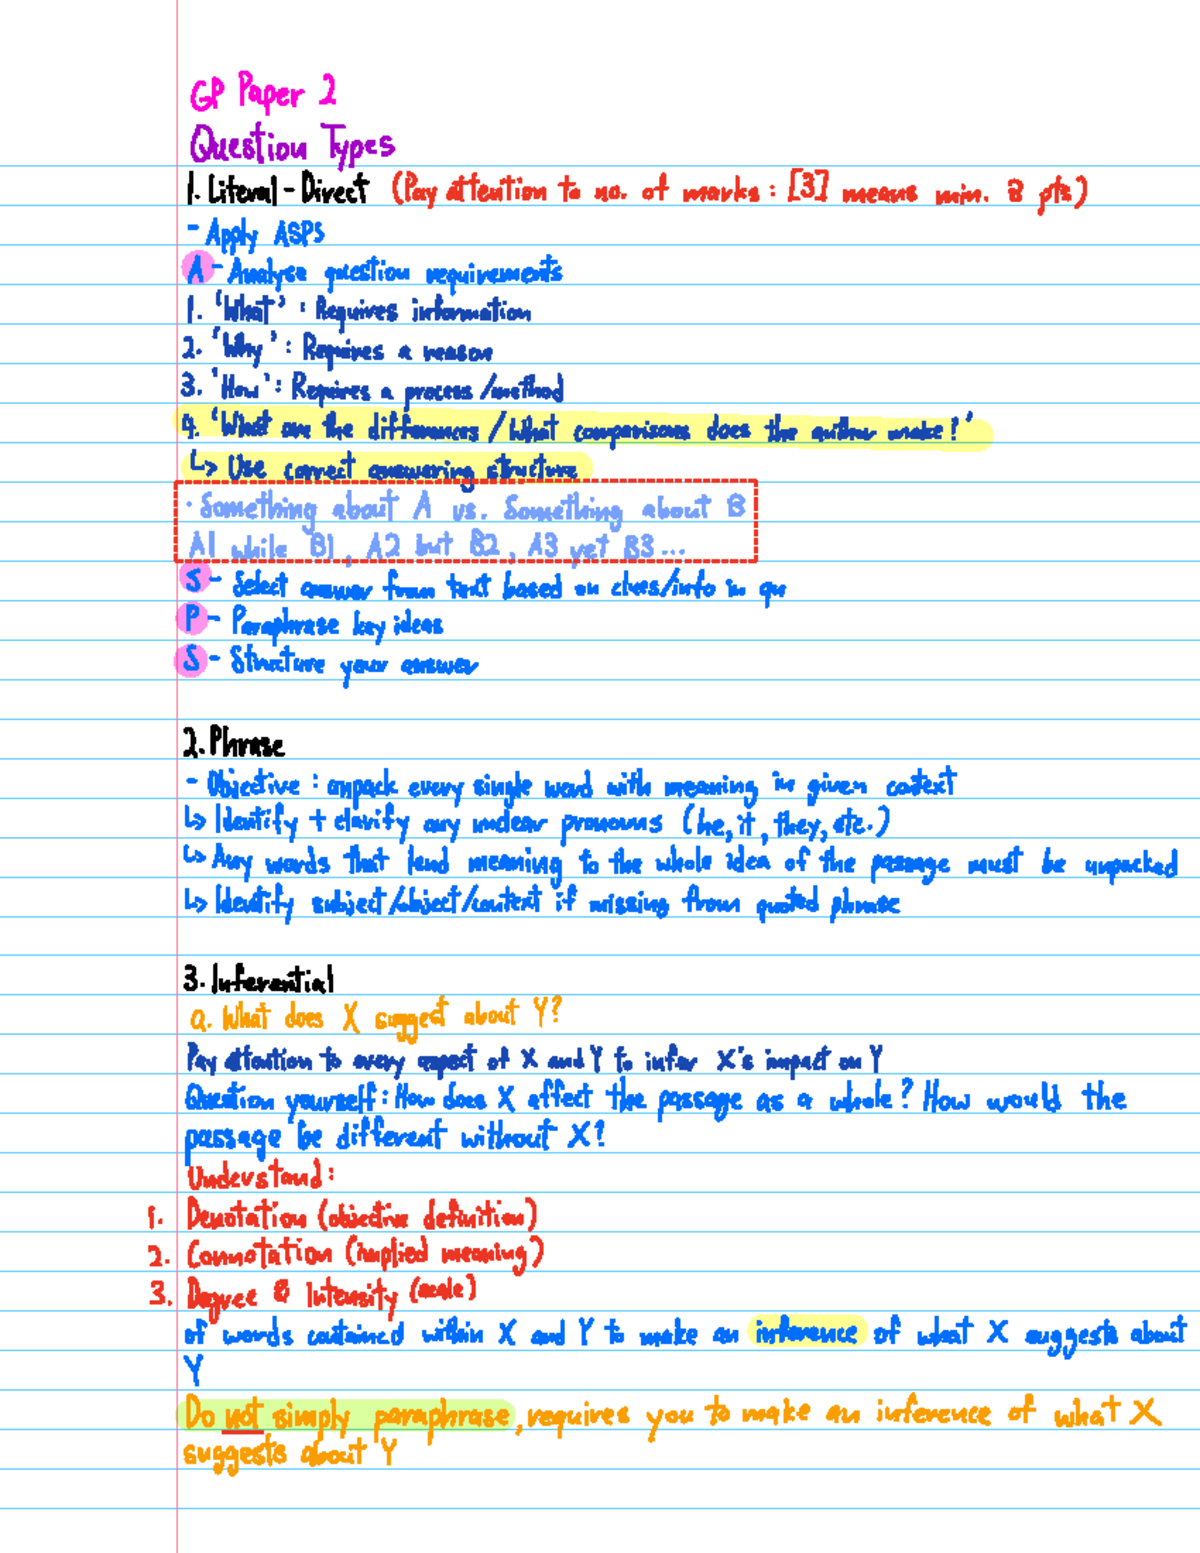 GP Paper 2
Question Types
1. Literal - Direct (Pay attention to no. of marks : [3] means min. 3 pts)
- Apply ASPS
A - Analyse question requirements
1. 'What' : Requires information
2. 'Why' : Requires a reason
3. 'How' : Requires a process/method
4. 'What are the differences / What comparisons does the author make?'
↳ Use correct answering structure
· Something about A vs. Something about B
A1 while B1, A2 but B2, A3 yet B3...
S - Select answer from text based on clues/info in qn
P - Paraphrase key ideas
S - Structure your answer
2. Phrase
- Objective : unpack every single word with meaning in given context
↳ Identify + clarify any unclear pronouns (he, it, they, etc.)
↳ Any words that lend meaning to the whole idea of the passage must be unpacked
↳ Identify subject/object/context if missing from quoted phrase
3. Inferential
a. What does X suggest about Y?
Pay attention to every aspect of X and Y to infer X's impact on Y
Question yourself : How does X affect the passage as a whole? How would the
passage be different without X?
Understand :
1. Denotation (objective definition)
2. Connotation (implied meaning)
3. Degree & Intensity (scale)
of words contained within X and Y to make an inference of what X suggests about
Y
Do not simply paraphrase, requires you to make an inference of what X
suggests about Y